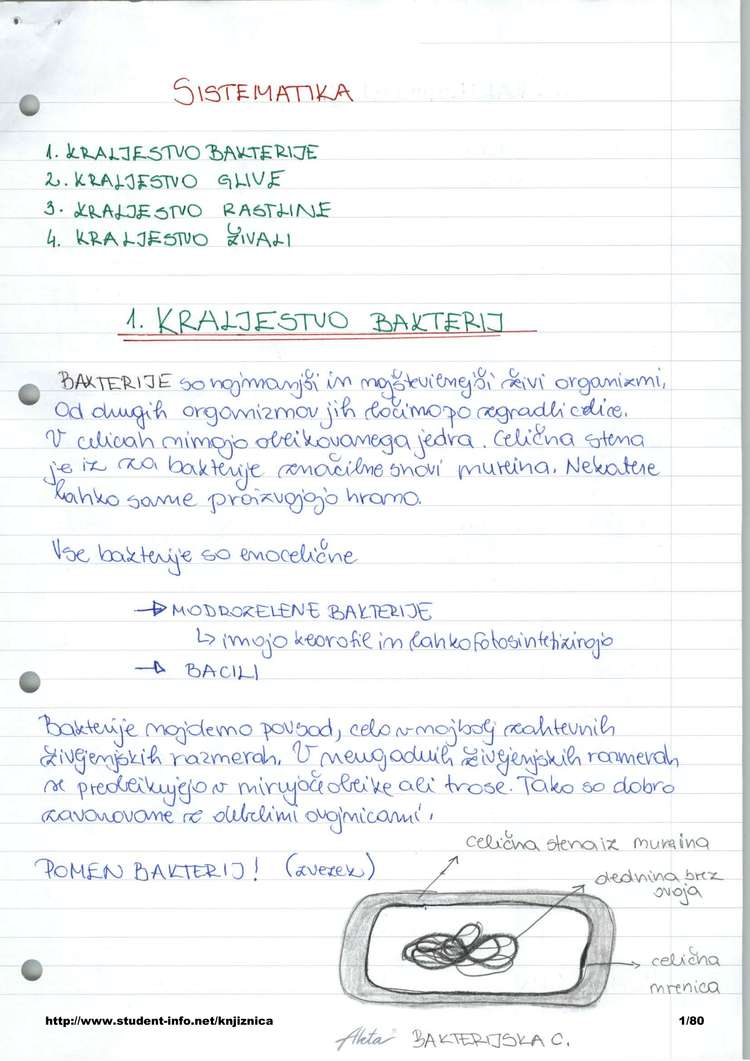 SISTEMATIKA
1. KRALJESTVO BAKTERIJE
2. KRALJESTVO GLIVE
3. KRALJESTVO RASTLINE
4. KRALJESTVO ŽIVALI
1. KRALJESTVO BAKTERIJ
BAKTERIJE so najmanjši in najštevilnejši živi organizmi.
Od drugih organizmov jih ločimo po zgradbi celice.
V celicah nimajo oblikovanega jedra. Celična stena
je iz za bakterije značilne snovi mureina. Nekatere
lahko same proizvajajo hrano.
Vse bakterije so enocelične
→ MODROZELENE BAKTERIJE
↳ imajo klorofil in lahko fotosintetizirajo
→ BACILI
Bakterije najdemo povsod, celo v najbolj zahtevnih
življenjskih razmerah. V neugodnih življenjskih razmerah
se preoblikujejo v mirujoče oblike ali trose. Tako so dobro
zavarovane z debelimi ovojnicami.
POMEN BAKTERIJ! (zvezek)
celična stena iz mureina
dednina brez
ovoja
celična
mrenica
BAKTERIJSKA C.
http://www.student-info.net/knjiznica
1/80